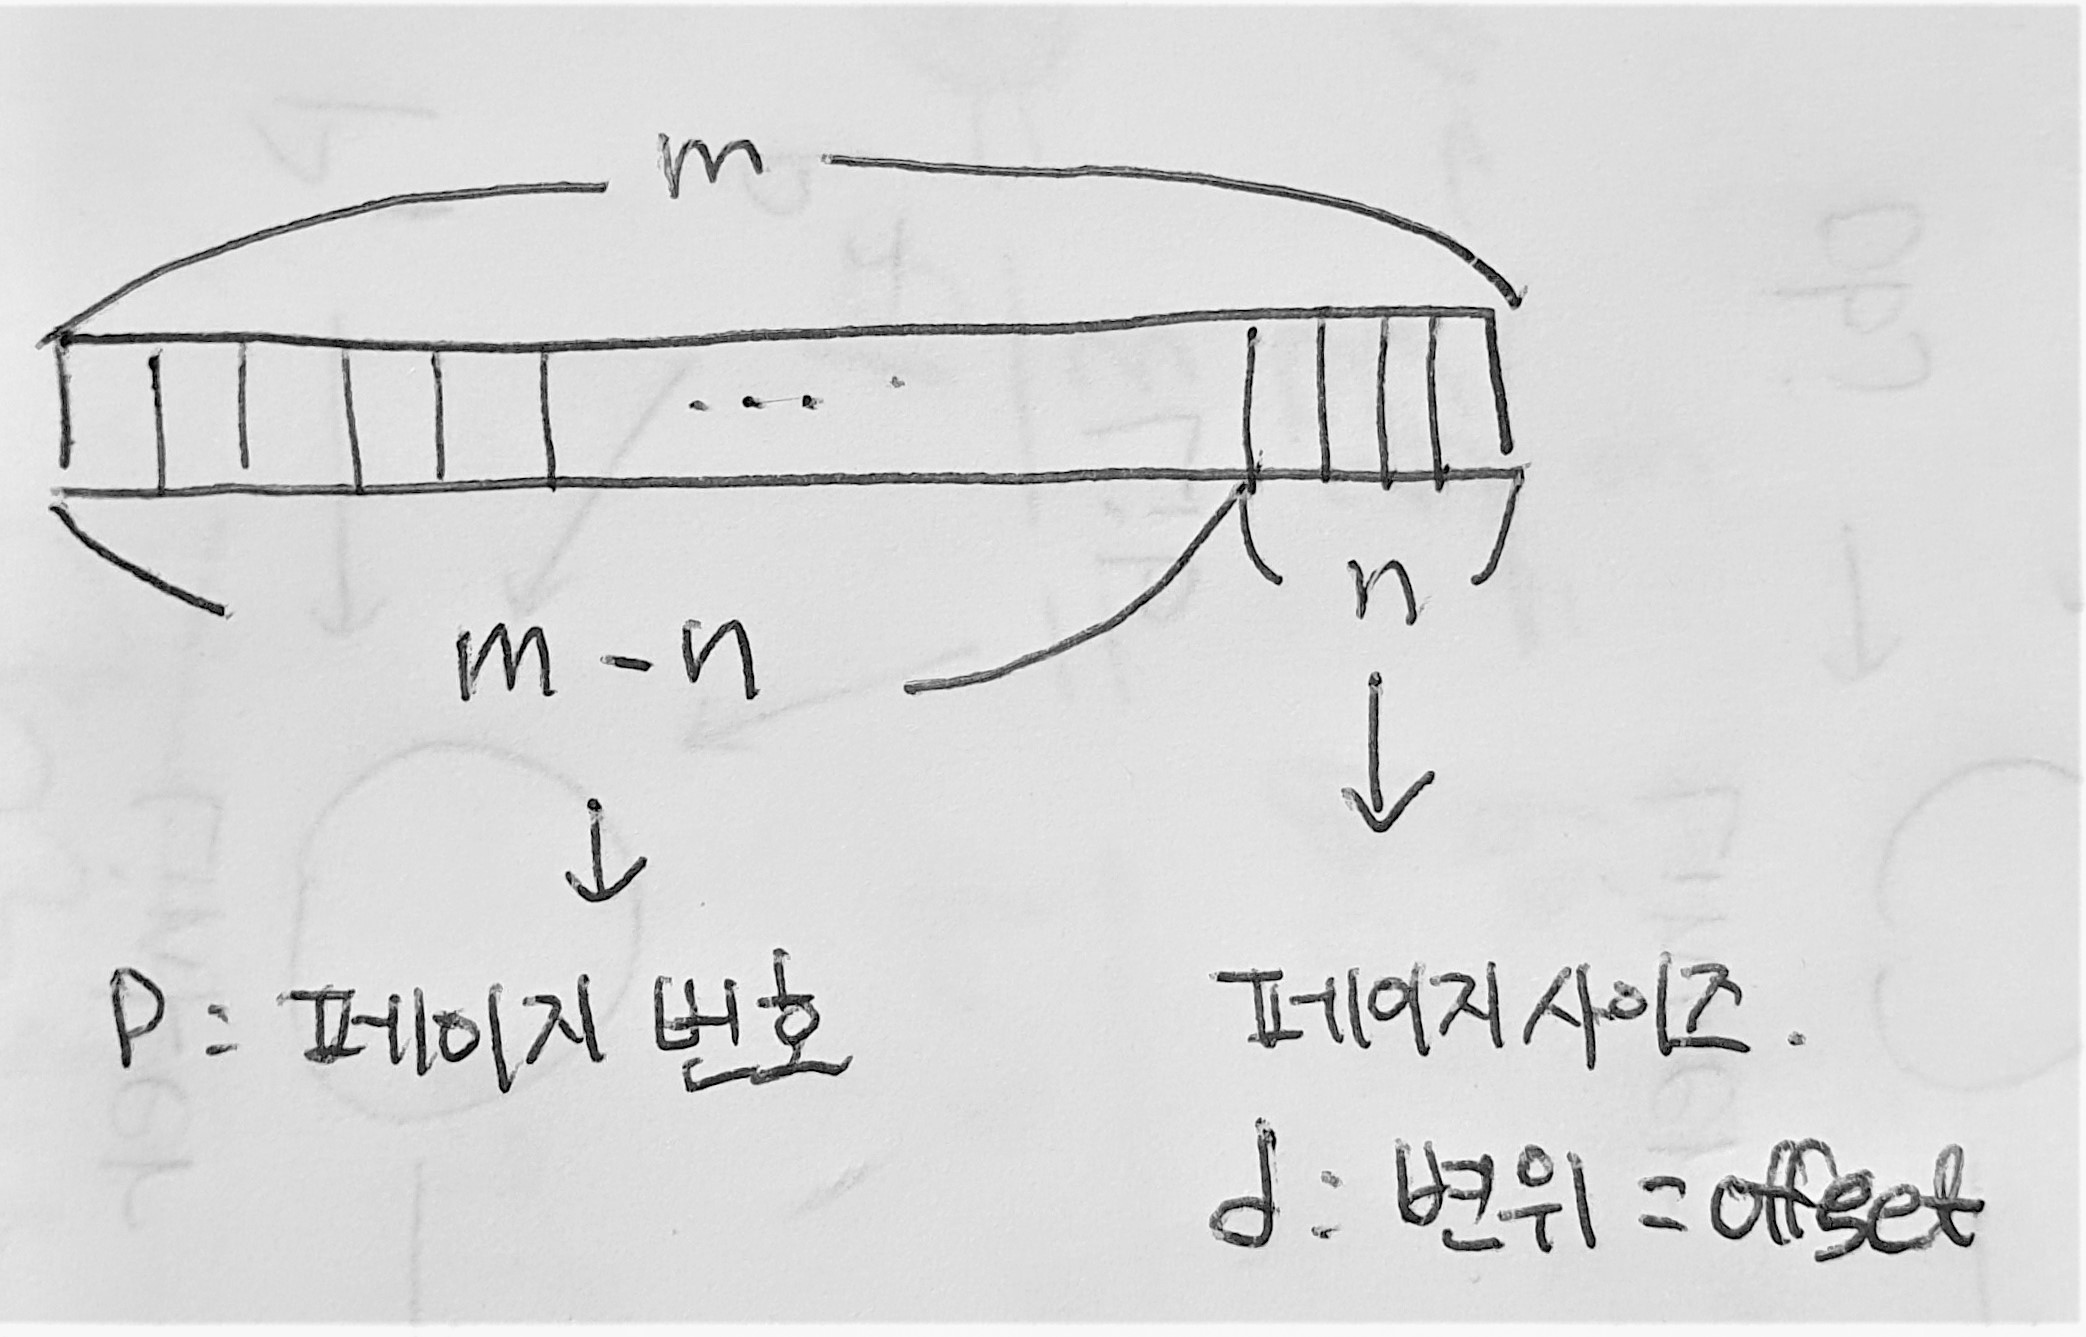 m
....
m - n
n
P: 페이지 번호
페이지 사이즈.
d: 변위 = offset